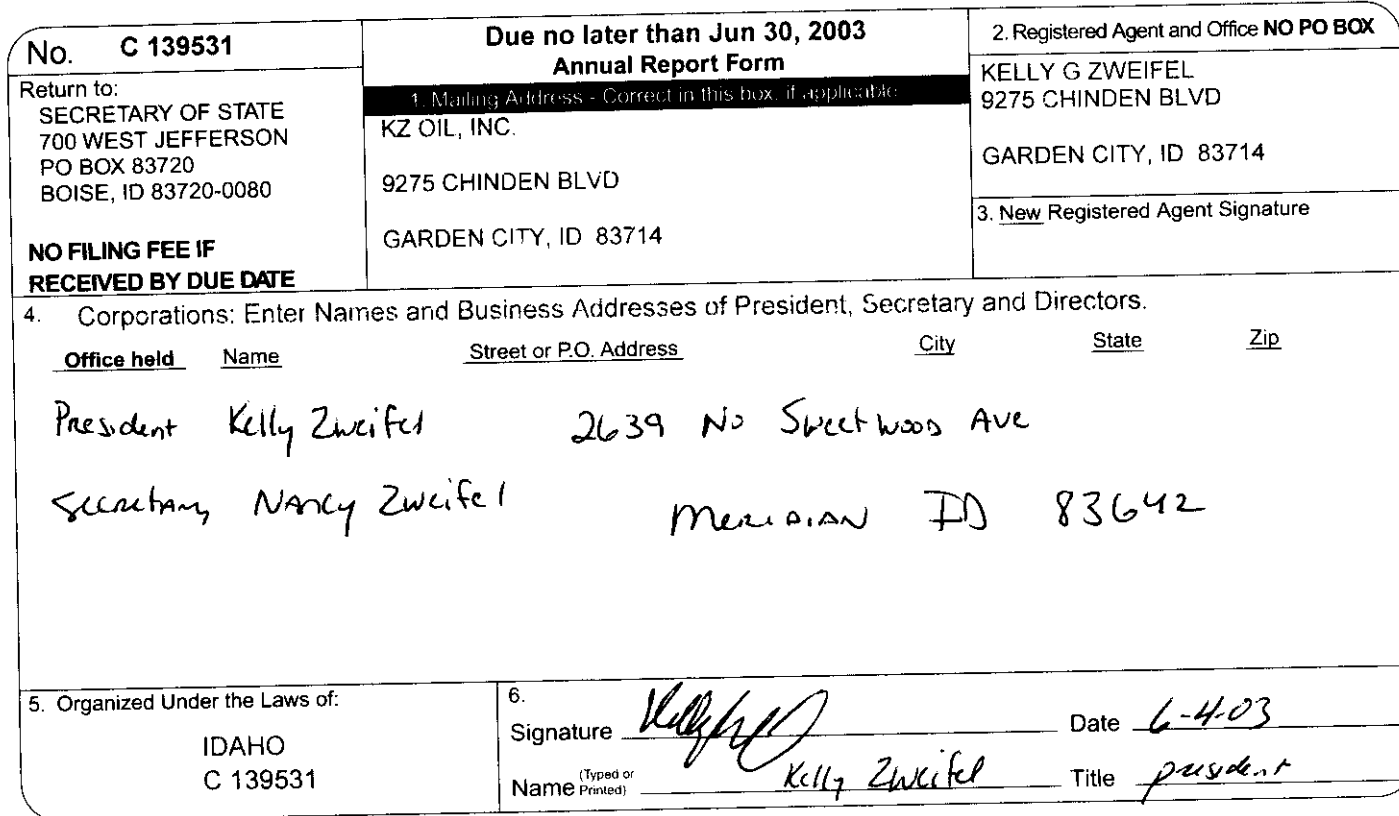 No. C 139531
Return to:
SECRETARY OF STATE
700 WEST JEFFERSON
PO BOX 83720
BOISE, ID 83720-0080
NO FILING FEE IF
RECEIVED BY DUE DATE
Due no later than Jun 30, 2003
Annual Report Form
1. Mailing Address - Correct in this box, if applicable
KZ OIL, INC.
9275 CHINDEN BLVD
GARDEN CITY, ID 83714
2. Registered Agent and Office NO PO BOX
KELLY G ZWEIFEL
9275 CHINDEN BLVD
GARDEN CITY, ID 83714
3. New Registered Agent Signature
4. Corporations: Enter Names and Business Addresses of President, Secretary and Directors.
Office held Name Street or P.O. Address City State Zip
President Kelly Zweifel 2639 No Sweetwood Ave
Secretary Nancy Zweifel Meridian ID 83642
5. Organized Under the Laws of:
IDAHO
C 139531
6.
Signature Date 6-4-03
Name (Typed or Printed) Kelly Zweifel Title president